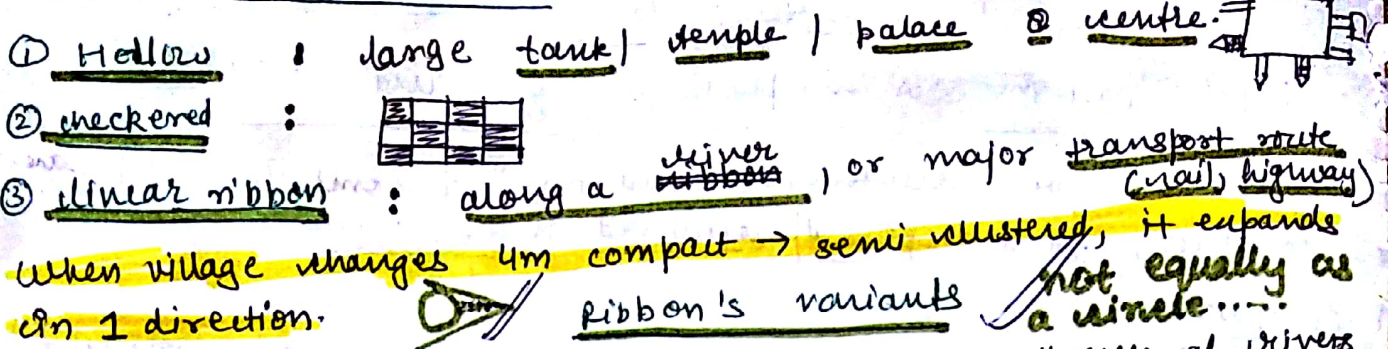 ① Hollow : large tank / temple / palace @ centre.
② checkered :
③ linear ribbon : along a river, or major transport route (rail, highway)
When village changes 4m compact → semi clustered, it expands
in 1 direction.
not equally as
a circle.....
Ribbon's variants
rivers